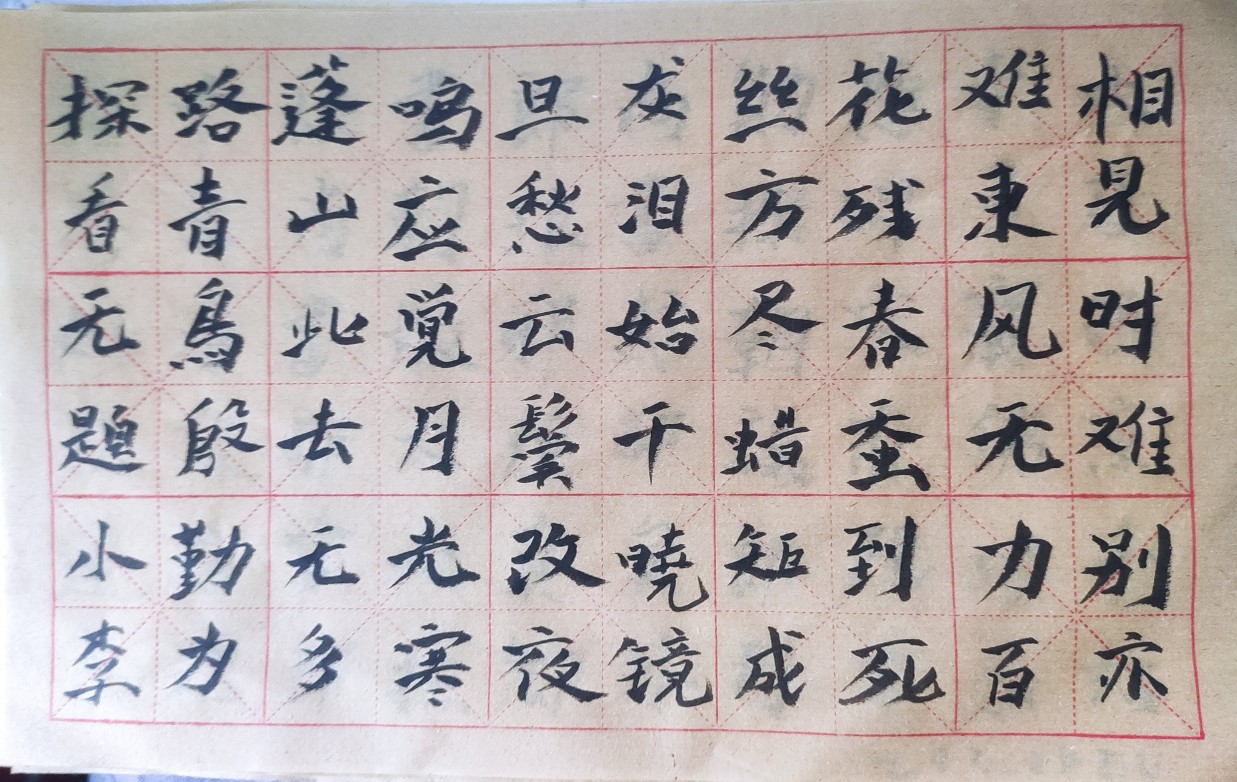 相見时难别亦
难東风无力百
花残春蚕到死
丝方尽蜡矩成
灰泪始干暁镜
旦愁云鬓改夜
鸣应覚月光寒
蓬山此去无多
路青鳥殷勤为
探看无题小李